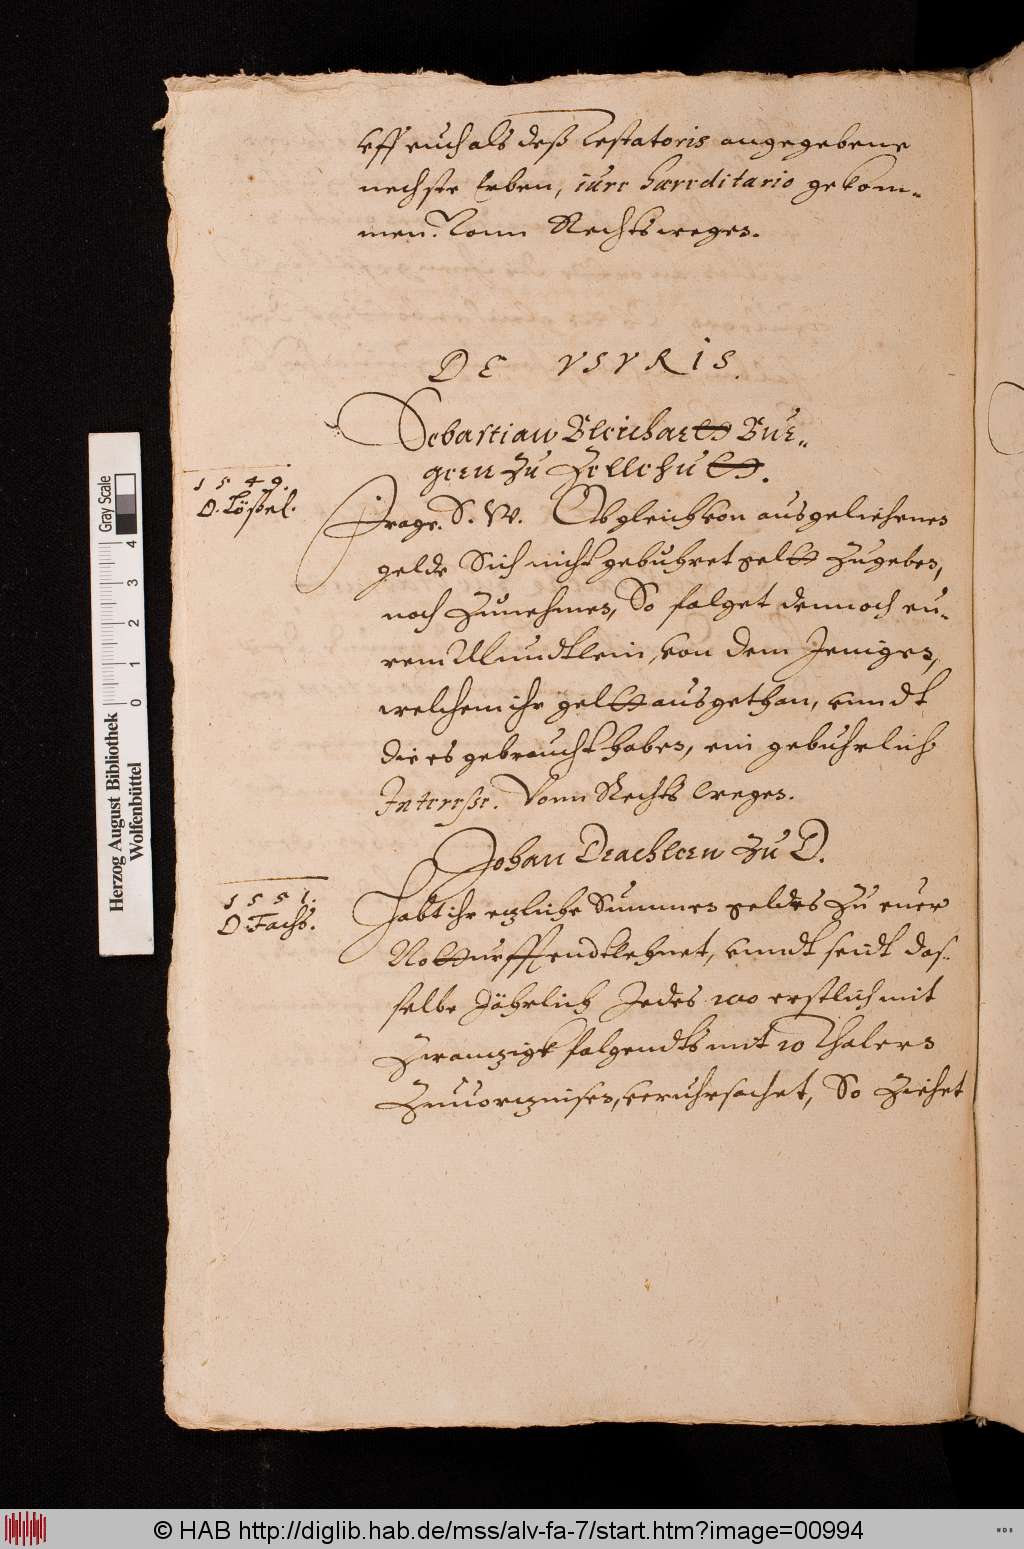 auff euch als deß Testatoris angegebene
nechste Erben, iure hæreditario gekom-
men. Vonn Rechts weges.
DE VSVRIS.
Sebastian Bleichardt Bur-
gern zu
1549.
D. Lößel.
Frage. S. W. Ob gleich von ausgeliehenes
gelde Sich nicht gebuhret gelt zugebes,
noch zunehmes, So folget dennoch eu-
rem Mundtlein, von dem Jeniges,
welchem ihr gelt ausgethan, vnndt
die es gebraucht habes, ein gebuhrlich
Interesse. Vonn Rechts weges.
Johan Drachten zu D.
1551.
D. Fachs.
Habt ihr etzliche Summes geldes zu euer
Notturfft endtlehnet, vnndt seidt das-
selbe Jährlich Jedes 100 erstlich mit
Zwanzigk folgendts mit 10 Thalers
Zuuorczinses, verursachet, So ziehet
Herzog August Bibliothek
Wolfenbüttel
Gray Scale
0 1 2 3 4
© HAB http://diglib.hab.de/mss/alv-fa-7/start.htm?image=00994